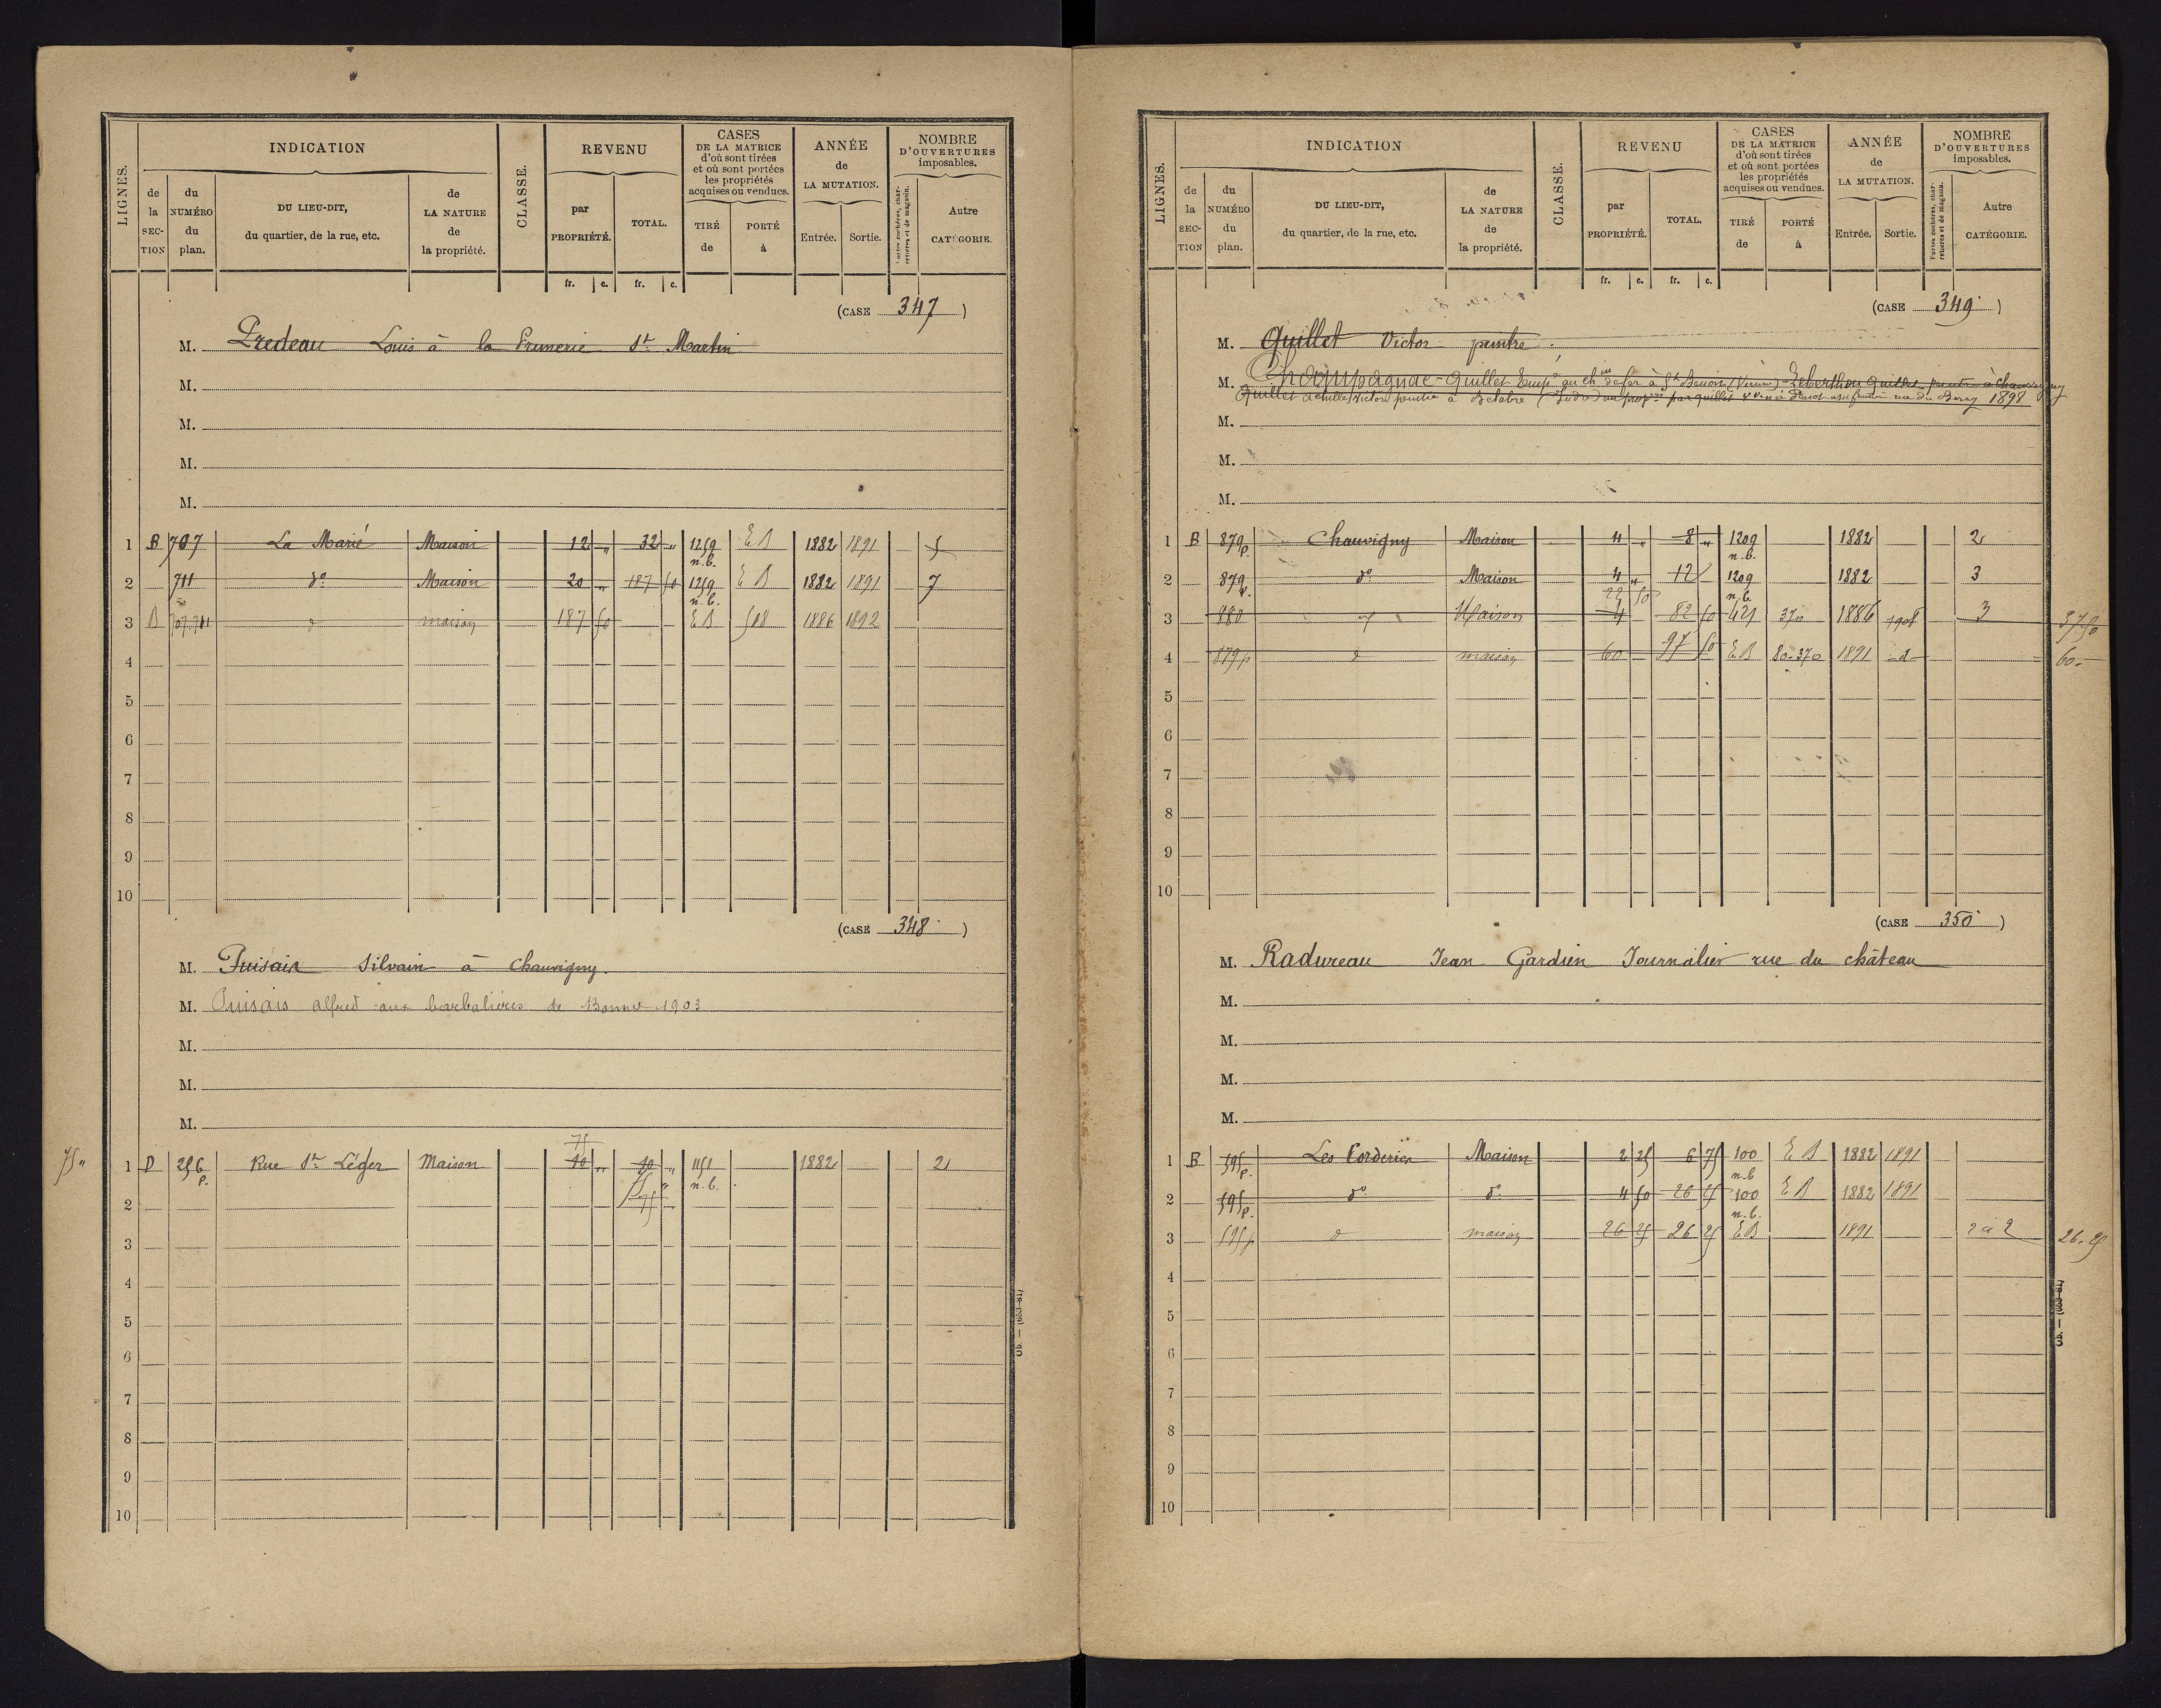 LIGNES.
INDICATION
de la SECTION
du NUMÉRO du plan.
DU LIEU-DIT, du quartier, de la rue, etc.
de LA NATURE de la propriété.
CLASSE.
REVENU
par PROPRIÉTÉ.
TOTAL.
fr. c. fr. c.
CASES DE LA MATRICE d'où sont tirées et où sont portées les propriétés acquises ou vendues.
TIRÉ de
PORTÉ à
ANNÉE de LA MUTATION.
Entrée. Sortie.
NOMBRE D'OUVERTURES imposables.
Portes cochères, charretières et de magasin.
Autre CATÉGORIE.
(CASE 347)
M. Predeau Louis à la St Martin
M.
M.
M.
M.
1 B 707 La Marié Maison 12 " 32 " 1259 n.b. EB 1882 1891 5
2 711 do Maison 20 " 187 50 1259 n.b. EB 1882 1891 7
3 B 707.711 d maison 187 50 EB 508 1886 1892
4
5
6
7
8
9
10
(CASE 348)
M. Puisais Silvain à Chauvigny.
M. Puisais alfred aux barbalières de Bonnes 1903
M.
M.
M.
75 " 1 D 256 p. Rue St Léger Maison 75 10 " 10 " 1151 n.b. 1882 2
2 75 "
3
4
5
6
7
8
9
10
LIGNES.
INDICATION
de la SECTION
du NUMÉRO du plan.
DU LIEU-DIT, du quartier, de la rue, etc.
de LA NATURE de la propriété.
CLASSE.
REVENU
par PROPRIÉTÉ.
TOTAL.
fr. c. fr. c.
CASES DE LA MATRICE d'où sont tirées et où sont portées les propriétés acquises ou vendues.
TIRÉ de
PORTÉ à
ANNÉE de LA MUTATION.
Entrée. Sortie.
NOMBRE D'OUVERTURES imposables.
Portes cochères, charretières et de magasin.
Autre CATÉGORIE.
(CASE 349)
M. Quillet Victor peintre.
M. Champagnac-Quillet Empé au chin de fer à St Benoist (Vienne) - Leberthon Quillet peintre à Chauvigny
Quillet achille Victor peintre à Belabre (Indre) nu propre par quillet rue du Berry 1898
M.
M.
M.
1 B 879 p. Chauvigny Maison 4 " 8 " 1209 n.b. 1882 2
2 879 p. do Maison 4 " 12 1209 n.b. 1882 3
3 880 d Maison 22 50 4 82 50 421 370 1886 1908 3 37 50
4 879 p d maison 60 97 50 EB 80-370 1891 d 60 -
5
6
7
8
9
10
(CASE 350)
M. Radureau Jean Gardien Journalier rue du château
M.
M.
M.
M.
1 B 595 p. Les Corderies Maison 2 25 6 75 100 n.b EB 1882 1891
2 595 p. do do 4 50 26 25 100 n.b. EB 1882 1891
3 595 p d maison 26 25 26 25 EB 1891 2 à 2 26.25
4
5
6
7
8
9
10